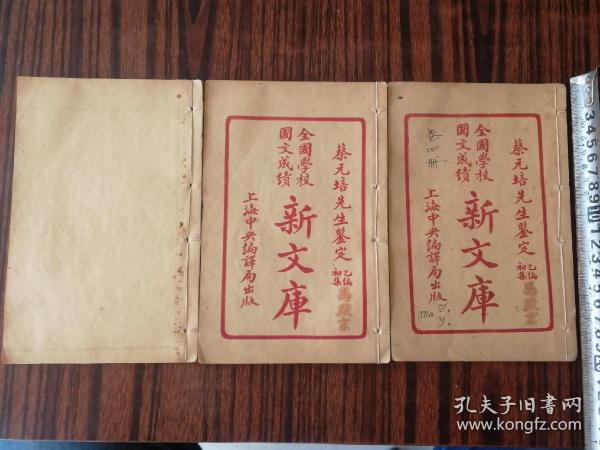 蔡元培先生鑒定
乙編
初集
全國學校
國文成績
新文庫
上海中央編譯局出版
蔡元培先生鑒定
乙編
初集
全國學校
國文成績
新文庫
上海中央編譯局出版
卷四册
Ma
孔夫子旧书网
www.kongfz.com